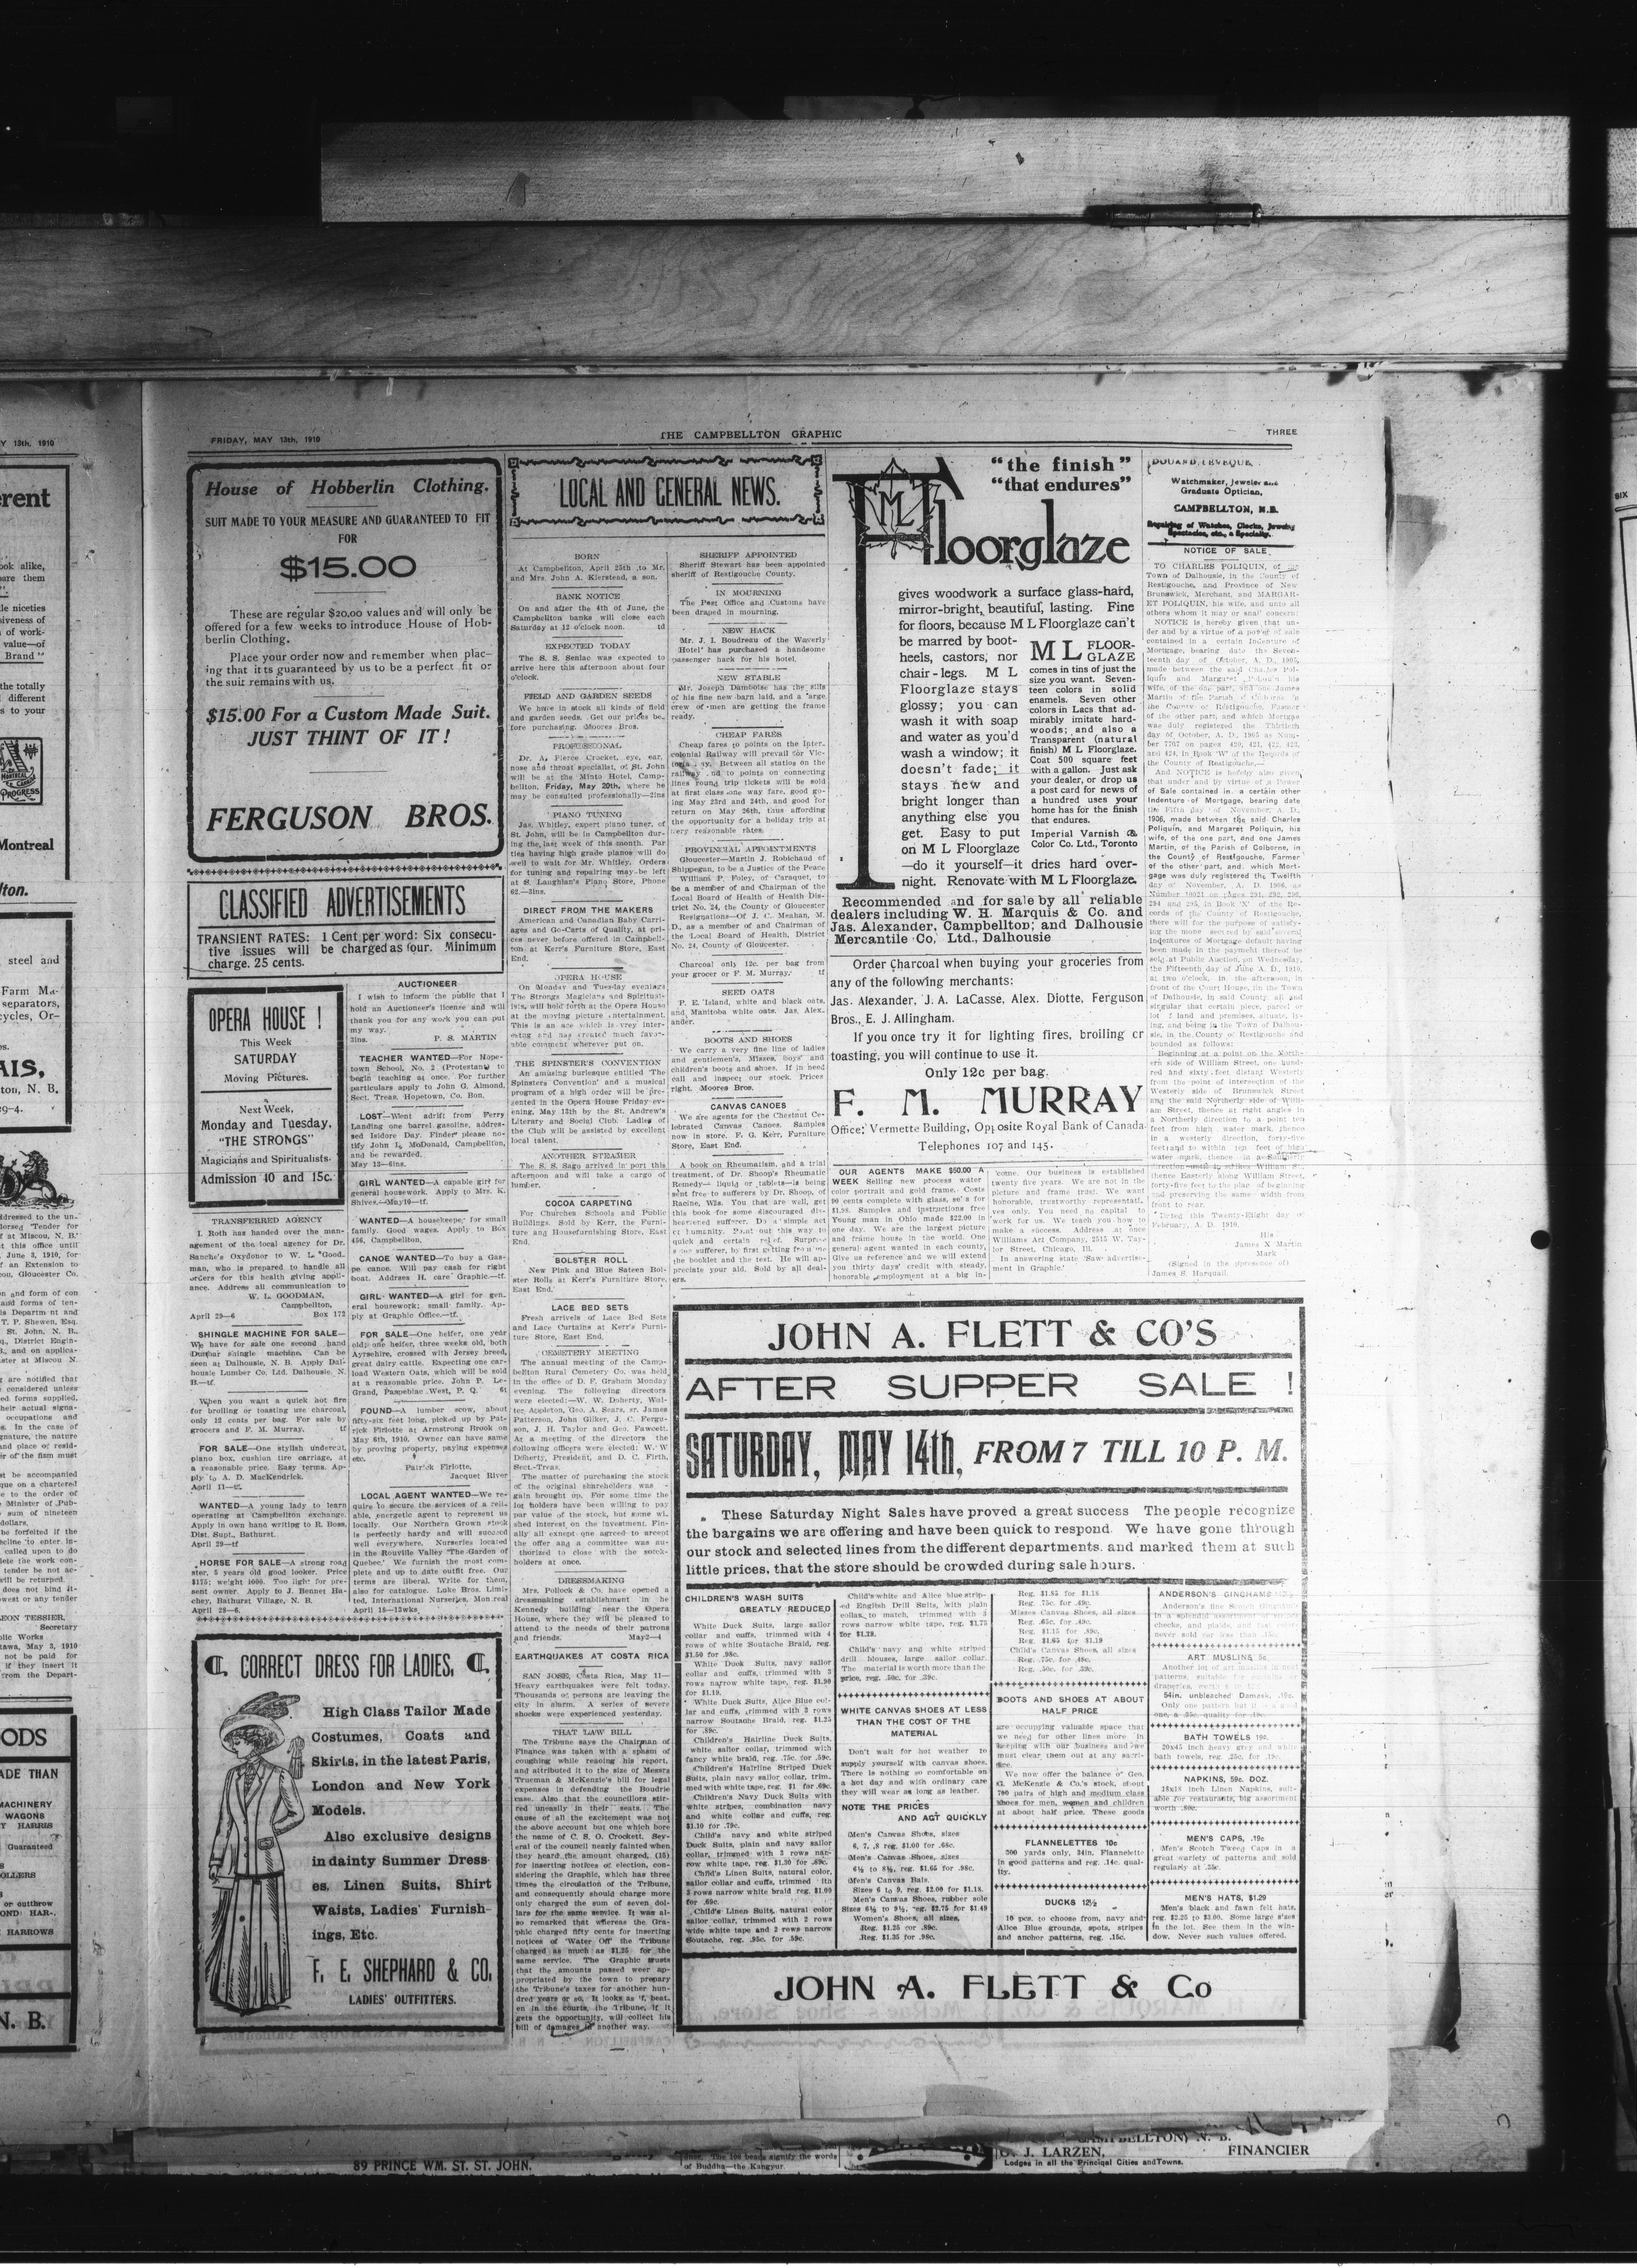 FRIDAY, MAY 13th, 1910
THE CAMPBELLTON GRAPHIC
THREE
House of Hobberlin Clothing.
SUIT MADE TO YOUR MEASURE AND GUARANTEED TO FIT
FOR
$15.00
These are regular $20.00 values and will only be
offered for a few weeks to introduce House of Hob-
berlin Clothing.
Place your order now and remember when plac-
ing that it ts guaranteed by us to be a perfect fit or
the suit remains with us.
$15.00 For a Custom Made Suit.
JUST THINT OF IT!
FERGUSON BROS.
CLASSIFIED ADVERTISEMENTS
TRANSIENT RATES: 1 Cent per word: Six consecu-
tive issues will be charged as four. Minimum
charge. 25 cents.
OPERA HOUSE!
This Week
SATURDAY
Moving Pictures.
Next Week,
Monday and Tuesday,
"THE STRONGS"
Magicians and Spiritualists.
Admission 10 and 15c.
TRANSFERRED AGENCY
I. Roth has handed over the man-
agement of the local agency for Dr.
Sanche's Oxydonor to W. L. Good-
man, who is prepared to handle all
orders for this health giving appli-
ance. Address all communication to
W. L. GOODMAN,
Campbellton,
April 29—6 Box 172
SHINGLE MACHINE FOR SALE—
We have for sale one second hand
Dunbar shingle machine. Can be
seen at Dalhousie, N. B. Apply Dal-
housie Lumber Co. Ltd. Dalhousie, N.
B.—tf.
When you want a quick hot fire
for broiling or toasting use charcoal,
only 12 cents per bag. For sale by
grocers and F. M. Murray. tf
FOR SALE—One stylish undercut,
piano box, cushion tire carriage, at
a reasonable price. Easy terms. Ap-
ply to A. D. MacKendrick.
April 11—tf.
WANTED—A young lady to learn
operating at Campbellton exchange.
Apply in own hand writing to R. Boss,
Dist. Supt., Bathurst.
April 29—tf
HORSE FOR SALE—A strong road
ster, 5 years old good looker. Price
$175; weight 1000. Too light for pre-
sent owner. Apply to J. Bennet Ha-
chey, Bathurst Village, N. B.
April 28—6.
AUCTIONEER
I wish to inform the public that I
hold an Auctioneer's license and will
thank you for any work you can put
my way.
3ins. P. S. MARTIN
TEACHER WANTED—For Hope-
town School, No. 2 (Protestant) to
begin teaching at once. For further
particulars apply to John G. Almond,
Sect. Treas, Hopetown, Co. Bon.
LOST—Went adrift from Ferry
Landing one barrel gasoline, addres-
sed Isidore Day. Finder please no-
tify John L. McDonald, Campbellton,
and be rewarded.
May 13—6ins.
GIRL WANTED—A capable girl for
general housework. Apply to Mrs. K.
Shives.—May10—tf.
WANTED—A housekeeper for small
family. Good wages. Apply to Box
456, Campbellton.
CANOE WANTED—To buy a Gas-
pe canoe. Will pay cash for right
boat. Address H. care Graphic—tf.
GIRL WANTED—A girl for gen-
eral housework; small family. Ap-
ply at Graphic Office—tf.
FOR SALE—One heifer, one year
old; one heifer, three weeks old, both
Ayrshire, crossed with Jersey breed,
great dairy cattle. Expecting one car-
load Western Oats, which will be sold
at a reasonable price. John P. Le-
Grand, Paspebiac West, P. Q. 6t
FOUND—A lumber scow, about
fifty-six feet long, picked up by Pat-
rick Firlotte at Armstrong Brook on
May 6th, 1910. Owner can have same
by proving property, paying expenses
etc.
Patrick Firlotte,
Jacquet River
LOCAL AGENT WANTED—We re-
quire to secure the services of a reli-
able, energetic agent to represent us
locally. Our Northern Grown stock
is perfectly hardy and will succeed
well everywhere. Nurseries located
in the Rouville Valley 'The Garden of
Quebec.' We furnish the most com-
plete and up to date outfit free. Our
terms are liberal. Write for them,
also for catalogue. Luke Bros. Limi-
ted, International Nurseries, Montreal
April 18—13wks
CORRECT DRESS FOR LADIES.
High Class Tailor Made
Costumes, Coats and
Skirts, in the latest Paris,
London and New York
Models.
Also exclusive designs
in dainty Summer Dress-
es, Linen Suits, Shirt
Waists, Ladies' Furnish-
ings, Etc.
F. E. SHEPHARD & CO.
LADIES' OUTFITTERS.
LOCAL AND GENERAL NEWS.
BORN
At Campbellton, April 25th to Mr.
and Mrs. John A. Kierstead, a son.
BANK NOTICE
On and after the 4th of June, the
Campbellton banks will close each
Saturday at 12 o'clock noon. td
EXPECTED TODAY
The S. S. Senlac was expected to
arrive here this afternoon about four
o'clock.
FIELD AND GARDEN SEEDS
We have in stock all kinds of field
and garden seeds. Get our prices be-
fore purchasing. Moores Bros.
PROFESSIONAL
Dr. A. Pierce Crocket, eye, ear,
nose and throat specialist, of St. John
will be at the Minto Hotel, Camp-
bellton, Friday, May 20th, where he
may be consulted professionally—2ins
PIANO TUNING
Jas. Whitley, expert piano tuner, of
St. John, will be in Campbellton dur-
ing the last week of this month. Par
ties having high grade pianos will do
well to wait for Mr. Whitley. Orders
for tuning and repairing may be left
at S. Laughlan's Piano Store, Phone
62.—3ins.
DIRECT FROM THE MAKERS
American and Canadian Baby Carri-
ages and Go-Carts of Quality, at pri-
ces never before offered in Campbell-
ton at Kerr's Furniture Store, East
End.
OPERA HOUSE
On Monday and Tuesday evenings
The Strongs Magicians and Spiritual-
ists, will hold forth at the Opera House
at the moving picture entertainment.
This is an act which is vrey inter-
esting and has created much favor-
able comment wherever put on.
THE SPINSTER'S CONVENTION
An amusing burlesque entitled 'The
Spinsters Convention' and a musical
program of a high order will be pre-
sented in the Opera House Friday ev-
ening, May 13th by the St. Andrew's
Literary and Social Club. Ladies of
the Club will be assisted by excellent
local talent.
ANOTHER STEAMER
The S. S. Sago arrived in port this
afternoon and will take a cargo of
lumber.
COCOA CARPETING
For Churches Schools and Public
Buildings. Sold by Kerr, the Furni-
ture ang Housefurnishing Store, East
End.
BOLSTER ROLL
New Pink and Blue Sateen Bol-
ster Rolls at Kerr's Furniture Store,
East End.
LACE BED SETS
Fresh arrivels of Lace Bed Sets
and Lace Curtains at Kerr's Furni-
ture Store, East End.
CEMETERY MEETING
The annual meeting of the Camp-
bellton Rural Cemetery Co. was held
in the office of D. F. Graham Monday
evening. The following directors
were elected:—W. W. Doherty, Wal-
ter Appleton, Geo. A. Sears, sr. James
Patterson, John Gilker, J. C. Fergu-
son, J. H. Taylor and Geo. Fawcett.
At a meeting of the directors the
following officers were elected: W. W
Doherty, President, and D. C. Firth,
Sect.-Treas.
The matter of purchasing the stock
of the original shareholders was
gain brought up. For some time the
lot holders have been willing to pay
par value of the stock, but some wi.
shed interest on the investment. Fin-
ally all except one agreed to accept
the offer and a committee was au-
thorized to close with the stock-
holders at once.
DRESSMAKING
Mrs. Pollock & Co. have opened a
dressmaking establishment in the
Kennedy building near the Opera
House, where they will be pleased to
attend to the needs of their patrons
and friends. May2—4
EARTHQUAKES AT COSTA RICA
SAN JOSE, Costa Rica, May 11—
Heavy earthquakes were felt today.
Thousands of persons are leaving the
city in alarm. A series of severe
shocks were experienced yesterday.
THAT LAW BILL
The Tribune says the Chairman of
Finance was taken with a spasm of
coughing while reading his report,
and attributed it to the size of Messrs
Trueman & McKenzie's bill for legal
expenses in defending the Boudrie
case. Also that the councillors stir-
red uneasily in their seats. The
cause of all the excitement was not
the above account but one which bore
the name of C. S. O. Crockett. Sev-
eral of the council nearly fainted when
they heard the amount charged, (15)
for inserting notices of election, con-
sidering the Graphic, which has three
times the circulation of the Tribune,
and consequently should charge more
only charged the sum of seven dol-
lars for the same service. It was al-
so remarked that whereas the Gra-
phic charged fifty cents for inserting
notices of 'Water Off' the Tribune
charged as much as $1.25 for the
same service. The Graphic trusts
that the amounts passed weer ap-
propriated by the town to prepay
the Tribune's taxes for another hun-
dred years or so. It looks as if, beat-
en in the courts, the Tribune, if it
gets the opportunity, will collect his
bill of damages in another way.
SHERIFF APPOINTED
Sheriff Stewart has been appointed
sheriff of Restigouche County.
IN MOURNING
The Post Office and Customs have
been draped in mourning.
NEW HACK
Mr. J. I. Boudreau of the Waverly
Hotel has purchased a handsome
passenger hack for his hotel.
NEW STABLE
Mr. Joseph Damboise has the sills
of his fine new barn laid, and a large
crew of men are getting the frame
ready.
CHEAP FARES
Cheap fares to points on the Inter-
colonial Railway will prevail for Vic-
Between all statios on the
railway and to points on connecting
lines round trip tickets will be sold
at first class one way fare, good go-
ing May 23rd and 24th, and good for
return on May 26th, thus affording
the opportunity for a holiday trip at
very reasonable rates.
PROVINCIAL APPOINTMENTS
Gloucester—Martin J. Robichaud of
Shippegan, to be a Justice of the Peace
William P. Foley, of Caraquet, to
be a member of and Chairman of the
Local Board of Health of Health Dis-
trict No. 24, the County of Gloucester
Resignations—Of J. C. Meahan, M.
D., as a member of and Chairman of
the Local Board of Health, District
No. 24, County of Gloucester.
Charcoal only 12c. per bag from
your grocer or F. M. Murray. tf
SEED OATS
P. E. Island, white and black oats,
and Manitoba white oats. Jas. Alex-
ander.
BOOTS AND SHOES
We carry a very fine line of ladies
and gentlemen's, Misses, boys' and
children's boots and shoes. If in need
call and inspect our stock. Prices
right. Moores Bros.
CANVAS CANOES
We are agents for the Chestnut Ce-
lebrated Canvas Canoes. Samples
now in store. F. G. Kerr, Furniture
Store, East End.
A book on Rheumatism, and a trial
treatment, of Dr. Shoop's Rheumatic
Remedy—liquid or tablets—is being
sent free to sufferers by Dr. Shoop, of
Racine, Wis. You that are well, get
this book for some discouraged dis-
heartened sufferer. Do a simple act
of humanity. Point out this way to
quick and certain relief. Surprise
some sufferer, by first getting from me
the booklet and the test. He will ap-
preciate your aid. Sold by all deal-
ers.
"the finish"
"that endures"
ML
Floorglaze
gives woodwork a surface glass-hard,
mirror-bright, beautiful, lasting. Fine
for floors, because M L Floorglaze can't
be marred by boot-
heels, castors, nor
chair-legs. M L
Floorglaze stays
glossy; you can
wash it with soap
and water as you'd
wash a window; it
doesn't fade; it
stays new and
bright longer than
anything else you
get. Easy to put
on M L Floorglaze
—do it yourself—it dries hard over-
night. Renovate with M L Floorglaze.
ML FLOOR-
GLAZE
comes in tins of just the
size you want. Seven-
teen colors in solid
enamels. Seven other
colors in Lacs that ad-
mirably imitate hard-
woods; and also a
Transparent (natural
finish) M L Floorglaze.
Coat 500 square feet
with a gallon. Just ask
your dealer, or drop us
a post card for news of
a hundred uses your
home has for the finish
that endures.
Imperial Varnish &
Color Co. Ltd., Toronto
Recommended and for sale by all reliable
dealers including W. H. Marquis & Co. and
Jas. Alexander, Campbellton; and Dalhousie
Mercantile Co, Ltd., Dalhousie
Order Charcoal when buying your groceries from
any of the following merchants:
Jas. Alexander, J. A. LaCasse, Alex. Diotte, Ferguson
Bros., E. J. Allingham.
If you once try it for lighting fires, broiling or
toasting, you will continue to use it.
Only 12c per bag.
F. M. MURRAY
Office: Vermette Building, Opposite Royal Bank of Canada.
Telephones 107 and 145.
OUR AGENTS MAKE $50.00 A
WEEK Selling new process water
color portrait and gold frame. Costs
90 cents complete with glass, se's for
$1.98. Samples and instructions free
Young man in Ohio made $22.00 in
one day. We are the largest picture
and frame house in the world. One
general agent wanted in each county.
Give us reference and we will extend
you thirty days' credit with steady,
honorable employment at a big in-
come. Our business is established
twenty five years. We are not in the
picture and frame trust. We want
honorable, trustworthy representati-
ves only. You need no capital to
work for us. We teach you how to
make a success. Address at once
Williams Art Company, 2515 W. Tay-
lor Street, Chicago, Ill.
In answering state 'Saw advertise-
ment in Graphic.'
Watchmaker, Jeweler and
Graduate Optician,
CAMPBELLTON, N.B.
Repairing of Watches, Clocks, Jewelry
Spectacles, etc., a Specialty.
NOTICE OF SALE
TO CHARLES POLIQUIN, of the
Town of Dalhousie, in the County of
Restigouche, and Province of New
Brunswick, Merchant, and MARGAR-
ET POLIQUIN, his wife, and unto all
others whom it may or shall concern:
NOTICE is hereby given that un-
der and by a virtue of a power of sale
contained in a certain Indenture of
Mortgage, bearing date the Seven-
teenth day of October, A. D., 1905,
made between the said Charles Pol-
iquin and Margaret Poliquin his
wife, of the one part, and one James
Martin of the Parish of Colborne in
the County of Restigouche, Farmer
of the other part, and which Mortgage
was duly registered the Thirtieth
day of October, A. D. 1905 as Num-
ber 7767 on pages 420, 421, 422, 423,
and 424, in Book 'W' of the Records of
the County of Restigouche,—
And NOTICE is hereby also given,
that under and by virtue of a Power
of Sale contained in a certain other
Indenture of Mortgage, bearing date
the Fifth day of November, A. D.
1906, made between the said Charles
Poliquin, and Margaret Poliquin, his
wife, of the one part, and one James
Martin, of the Parish of Colborne, in
the County of Restigouche, Farmer
of the other part, and which Mort-
gage was duly registered the Twelfth
day of November, A. D. 1906, as
Number 10021 on pages 291, 292, 293,
294 and 295, in Book 'X' of the Re-
cords of the County of Restigouche,
there will for the purpose of satisfy-
ing the mone secured by said several
Indentures of Mortgage default having
been made in the payment thereof be
sold at Public Auction, on Wednesday,
the Fifteenth day of June A. D., 1910,
at two o'clock, in the afternoon, in
front of the Court House, in the Town
of Dalhousie, in said County all and
singular that certain piece, parcel or
lot f land and premises, situate, ly-
ing, and being in the Town of Dalhou-
sie, in the County of Restigouche and
bounded as follows:
Beginning at a point on the North-
ern side of William Street, one hund-
red and sixty feet distant Westerly
from the point of intersection of the
Westerly side of Brunswick Street
and the said Northerly side of Willi-
am Street, thence at right angles in
a Northerly direction to a point ten
feet from high water mark, thence
in a westerly direction, forty-five
feet and to within ten feet of high
water mark, thence in a Southerly
direction until it strikes William St.,
thence Easterly along William Street,
forty-five feet to the place of beginning
and preserving the same width from
front to rear.
Dated this Twenty-Eight day of
February, A. D. 1910.
His
James X Martin
Mark
(Signed in the presence of)
James S. Harquail.
JOHN A. FLETT & CO'S
AFTER SUPPER SALE!
SATURDAY, MAY 14th, FROM 7 TILL 10 P. M.
These Saturday Night Sales have proved a great success The people recognize
the bargains we are offering and have been quick to respond. We have gone through
our stock and selected lines from the different departments, and marked them at such
little prices, that the store should be crowded during sale hours.
CHILDREN'S WASH SUITS
GREATLY REDUCED
White Duck Suits, large sailor
collar and cuffs, trimmed with 4
rows of white Soutache Braid, reg.
$1.50 for .98c.
White Duck Suits, navy sailor
collar and cuffs, trimmed with 3
rows narrow white tape, reg. $1.90
for $1.19.
White Duck Suits, Alice Blue col-
lar and cuffs, trimmed with 2 rows
narrow Soutache Braid, reg. $1.25
for .88c.
Children's Hairline Duck Suits,
white sailor collar, trimmed with
fancy white braid, reg. .75c. for .59c.
Children's Hairline Striped Duck
Suits, plain navy sailor collar, trim-
med with white tape, reg. $1 for .69c.
Children's Navy Duck Suits with
white stripes, combination navy
and white collar and cuffs, reg.
$1.10 for .79c.
Child's navy and white striped
Duck Suits, plain and navy sailor
collar, trimmed with 3 rows nar-
row white tape, reg. $1.30 for .89c.
Child's Linen Suits, natural color,
sailor collar and cuffs, trimmed ith
3 rows narrow white braid reg. $1.00
for .69c.
Child's Linen Suits, natural color
sailor collar, trimmed with 2 rows
wide white tape and 2 rows narrow
Soutache, reg. .95c. for .59c.
Child's white and Alice blue strip-
ed English Drill Suits, with plain
collar to match, trimmed with 3
rows narrow white tape, reg. $1.75
for $1.29.
Child's navy and white striped
drill blouses, large sailor collar.
The material is worth more than the
price, reg. .50c. for .39c.
WHITE CANVAS SHOES AT LESS
THAN THE COST OF THE
MATERIAL
Don't wait for hot weather to
supply yourself with canvas shoes.
There is nothing so comfortable on
a hot day and with ordinary care
they will wear as long as leather.
NOTE THE PRICES
AND ACT QUICKLY
Men's Canvas Shoes, sizes
6, 7, 8 reg. $1.00 for .68c.
Men's Canvas Shoes, sizes
6½ to 8½, reg. $1.65 for .98c.
Men's Canvas Bals.
Sizes 6 to 9, reg. $2.00 for $1.18.
Men's Canvas Shoes, rubber sole
Sizes 6½ to 9½, reg. $2.75 for $1.49
Women's Shoes, all sizes,
Reg. $1.25 for .89c.
Reg. $1.35 for .98c.
Reg. $1.85 for $1.18
Reg. .75c. for .49c.
Misses Canvas Shoes, all sizes
Reg. .65c. for .49c.
Reg. $1.15 for .89c.
Reg. $1.65 for $1.19
Child's Canvas Shoes, all sizes
Reg. .75c. for .48c.
Reg. .50c. for .39c.
BOOTS AND SHOES AT ABOUT
HALF PRICE
are occupying valuable space that
we need for other lines more in
keeping with our business and we
must clear them out at any sacri-
fice.
We now offer the balance o' Geo.
G. McKenzie & Co.'s stock, about
700 pairs of high and medium class
shoes for men, women and children
at about half price. These goods
FLANNELETTES 10c
300 yards only, 34in. Flannelette
in good patterns and reg. .14c. qual-
ity.
DUCKS 12½
10 pcs. to choose from, navy and
Alice Blue grounds, spots, stripes
and anchor patterns, reg. .15c.
ANDERSON'S GINGHAMS
Anderson's fine Scotch Ginghams
in a splendid assortment of
checks, and plaids, and fast colors
never sold for less than .15c.
ART MUSLINS, 5c
Another lot of art muslins in neat
patterns, suitable for
draperies,
54in. unbleached Damask, .19c.
Only one pattern but it is a good
one, a .35c. quality for .19c.
BATH TOWELS 19c.
20x45 inch heavy grey and white
bath towels, reg. .25c. for .19c.
NAPKINS, 59c. DOZ.
18x18 inch Linen Napkins, suit-
able for restaurants, big assortment
worth .80c.
MEN'S CAPS, .19c
Men's Scotch Tweed Caps in a
great variety of patterns and sold
regularly at .35c.
MEN'S HATS, $1.29
Men's black and fawn felt hats,
reg. $2.25 to $3.00. Some large sizes
in the lot. See them in the win-
dow. Never such values offered.
JOHN A. FLETT & Co
89 PRINCE WM. ST. ST. JOHN.
The 108 beads signify the words
of Buddha—the Kangyur.
CAMPBELLTON, N. B.
J. LARZEN, FINANCIER
Lodges in all the Principal Cities and Towns.